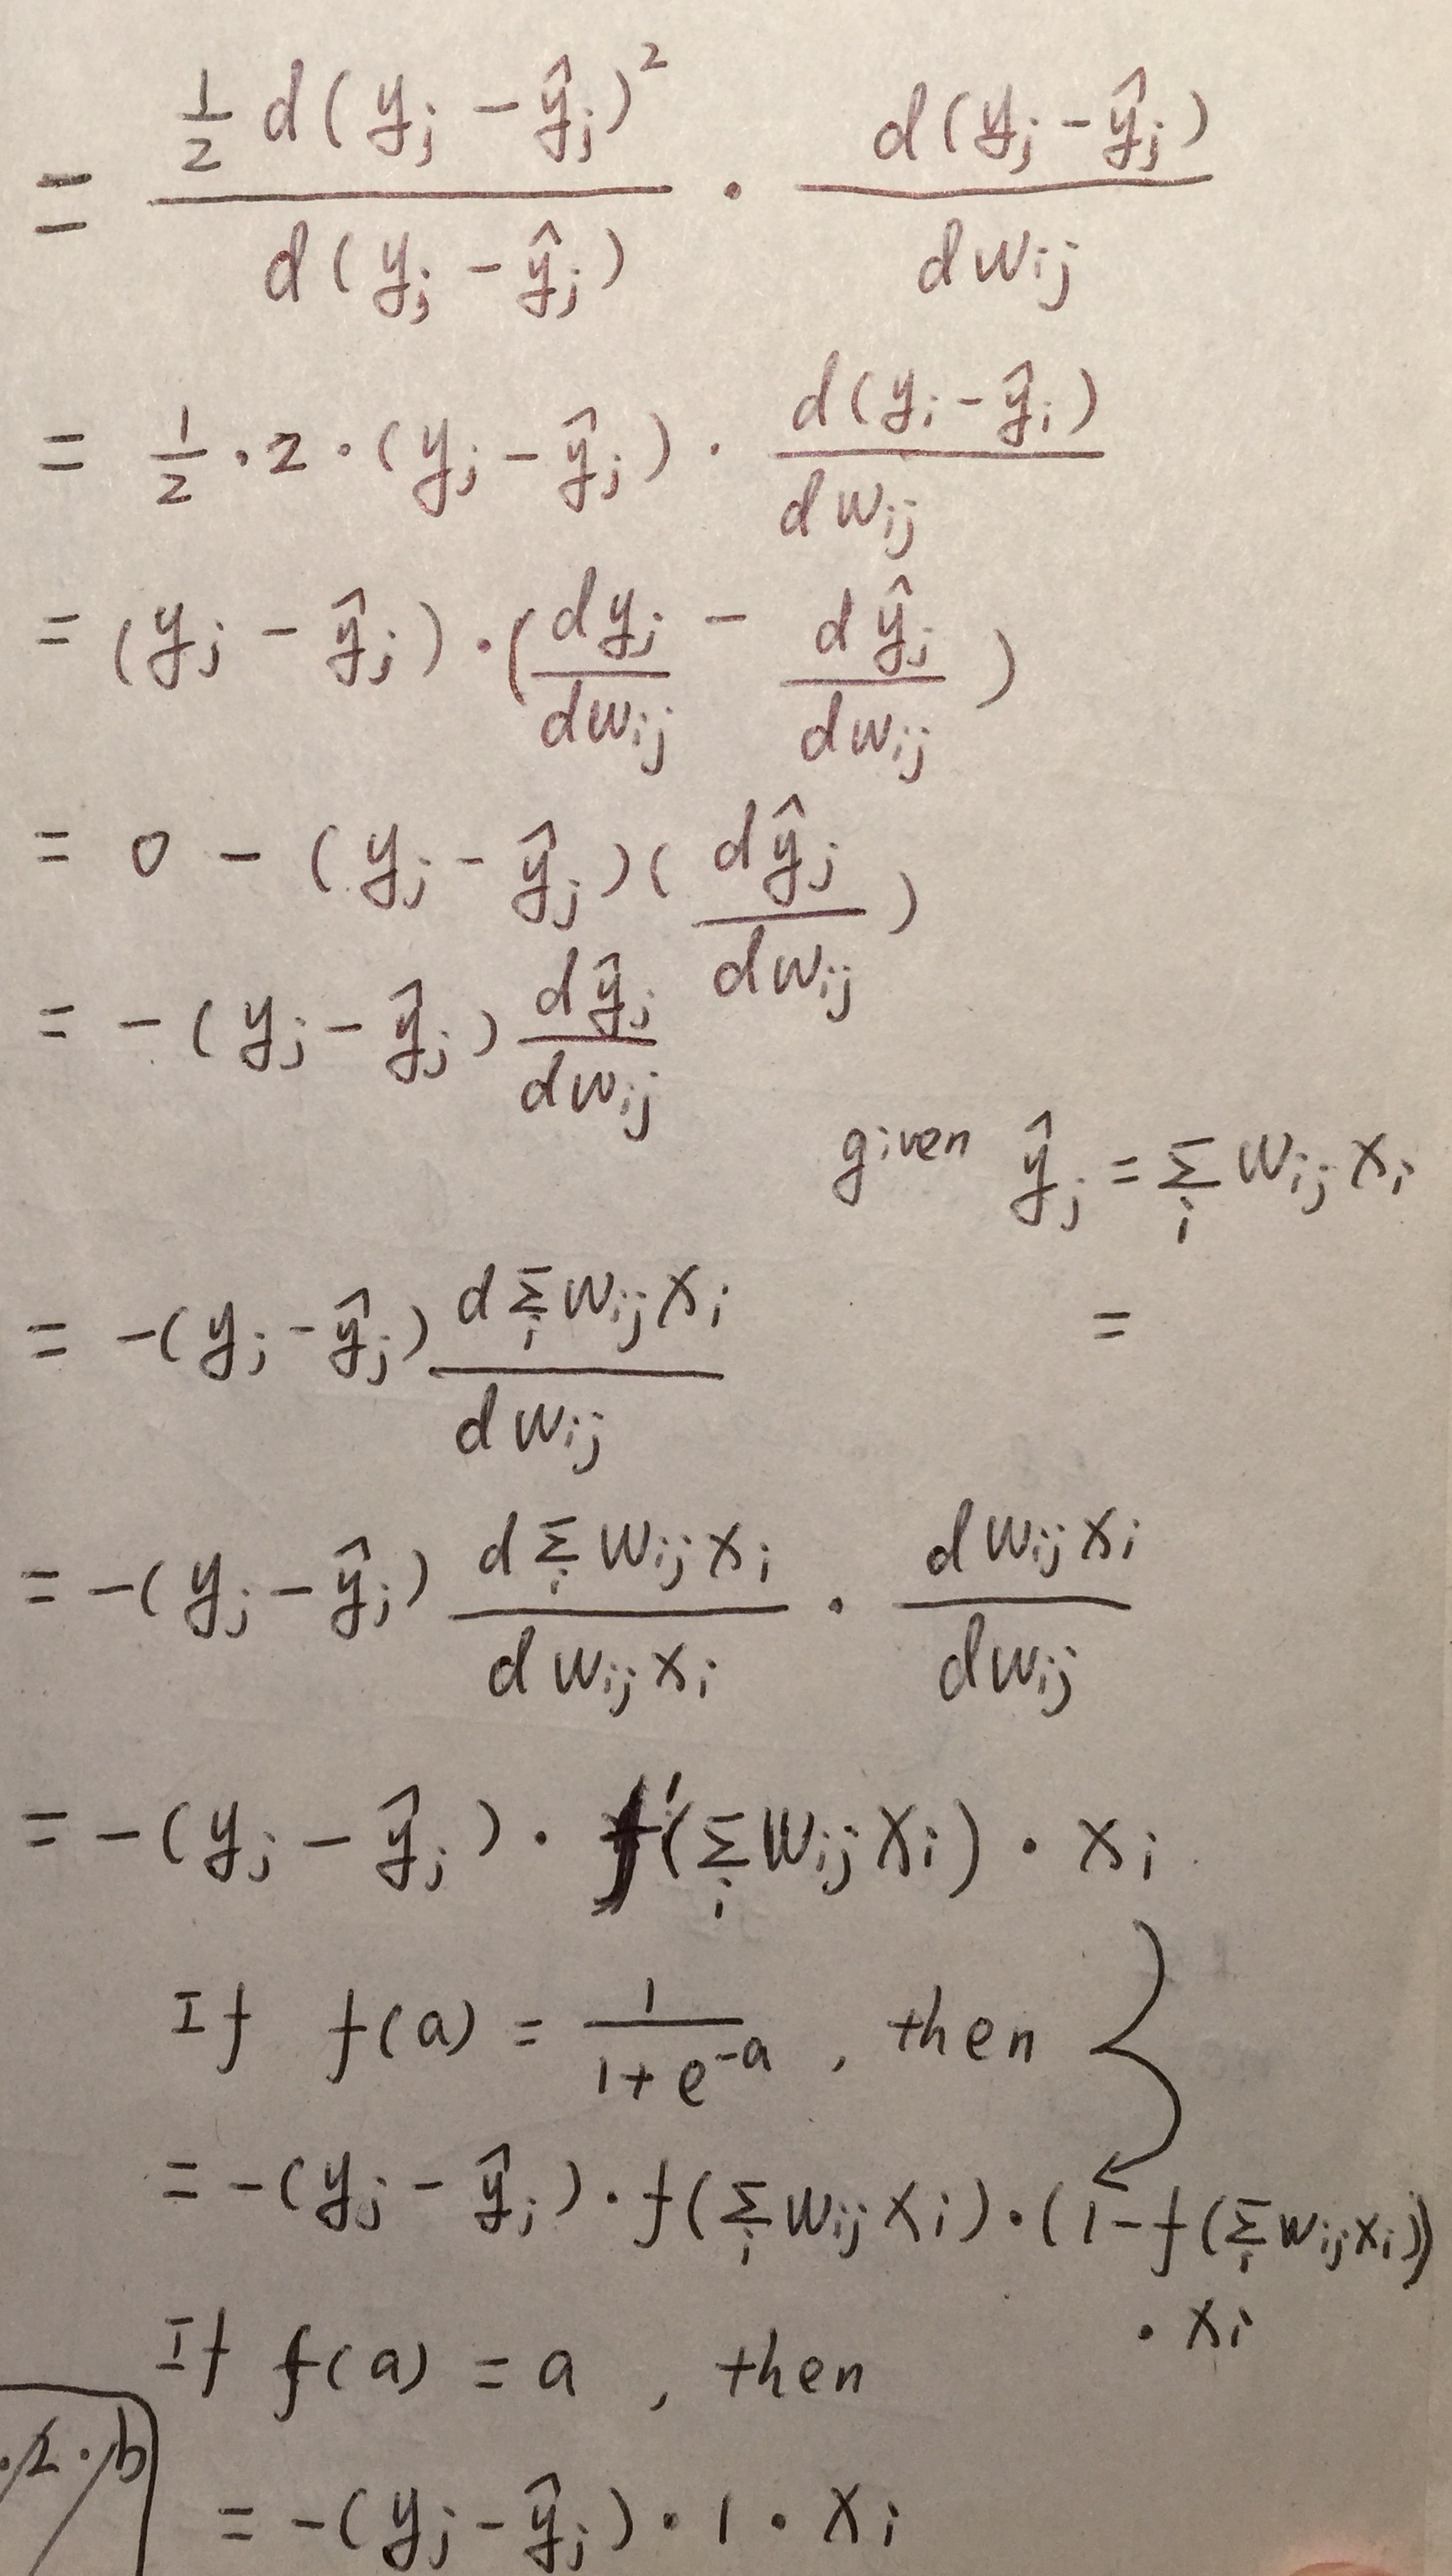 = \frac{\frac{1}{2} d(y_j - \hat{y}_j)^2}{d(y_j - \hat{y}_j)} \cdot \frac{d(y_j - \hat{y}_j)}{dw_{ij}}
= \frac{1}{2} \cdot 2 \cdot (y_j - \hat{y}_j) \cdot \frac{d(y_i - \hat{y}_i)}{dw_{ij}}
= (y_j - \hat{y}_j) \cdot (\frac{dy_j}{dw_{ij}} - \frac{d\hat{y}_j}{dw_{ij}})
= 0 - (y_j - \hat{y}_j)(\frac{d\hat{y}_j}{dw_{ij}})
= -(y_j - \hat{y}_j) \frac{d\hat{y}_j}{dw_{ij}}
given \hat{y}_j = \sum_i w_{ij} x_i
= -(y_j - \hat{y}_j) \frac{d\sum_i w_{ij} x_i}{dw_{ij}}
=
= -(y_j - \hat{y}_j) \frac{d\sum_i w_{ij} x_i}{dw_{ij} x_i} \cdot \frac{dw_{ij} x_i}{dw_{ij}}
= -(y_j - \hat{y}_j) \cdot f'(\sum_i w_{ij} x_i) \cdot x_i
If f(a) = \frac{1}{1+e^{-a}}, then
= -(y_j - \hat{y}_j) \cdot f(\sum_i w_{ij} x_i) \cdot (1 - f(\sum_i w_{ij} x_i))
\cdot x_i
If f(a) = a, then
= -(y_j - \hat{y}_j) \cdot 1 \cdot x_i